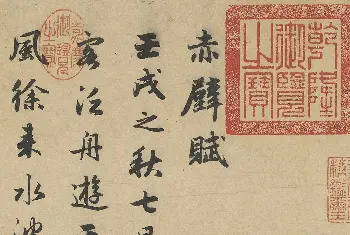 乾隆
御覽
之寶
赤壁賦
壬戌之秋七月
客泛舟遊于
風徐来水波